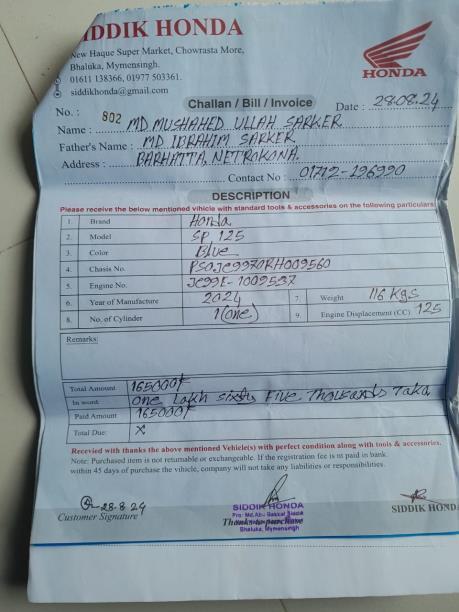 SIDDIK HONDA
New Haque Super Market, Chowrasta More,
Bhaluka, Mymensingh.
01611 138366, 01977 503361.
siddikhonda@gmail.com
HONDA
Challan / Bill / Invoice
Date : 28.08.24
No. : 802
Name : MD MUSHAHED ULLAH SARKER
Father's Name : MD IBRAHIM SARKER
Address : BARHATTA, NETROKONA.
Contact No : 01712-196990
DESCRIPTION
Please receive the below mentioned vihicle with standard tools & accessories on the following particulars
1. Brand Honda
2. Model SP, 125
3. Color Blue
4. Chasis No. PS0JC9970RH009560
5. Engine No. JC99E-1009537
6. Year of Manufacture 2024 7. Weight 116 KGS
8. No. of Cylinder 1 (one) 9. Engine Displacement (CC) 125
Remarks:
Total Amount 165000/
In word ONE Lakh Sixty Five Thousands Taka
Paid Amount 165000/
Total Due: X
Recevied with thanks the above mentioned Vehicle(s) with perfect condition along with tools & accessories.
Note: Purchased item is not returnable or exchangeable. If the registration fee is nt paid in bank
within 45 days of purchase the vihicle, company will not take any liabilities or responsibilities.
28.8.24
Customer Signature
SIDDIK HONDA
Pro: Md. Abu Bakkar Siddik
Thanks to purchase
Bhaluka, Mymensingh
SIDDIK HONDA